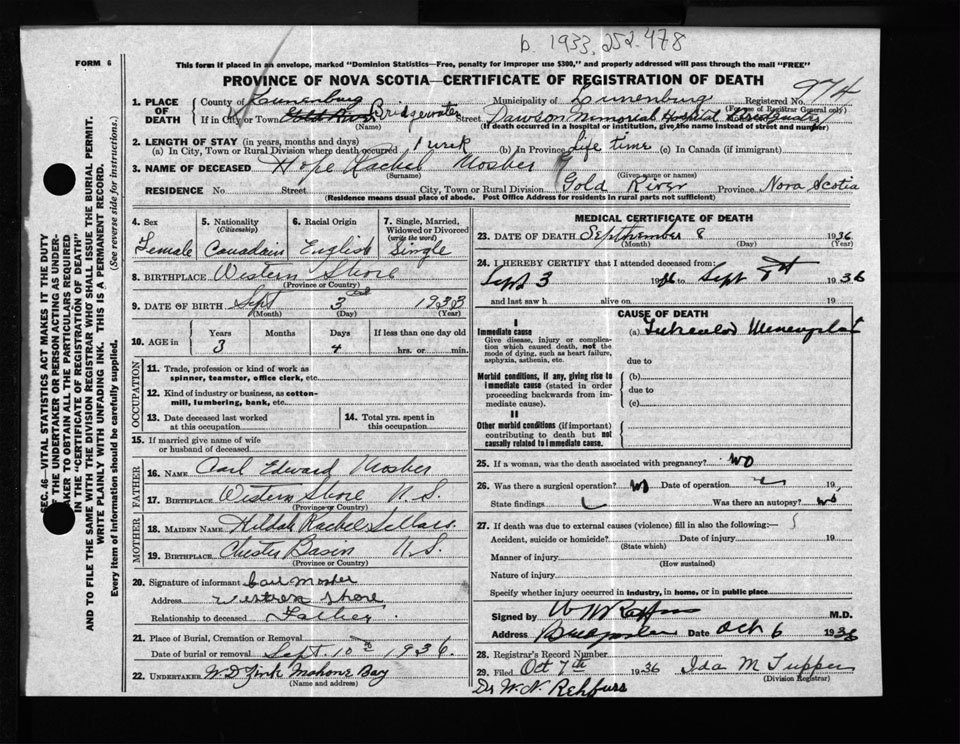 b. 1933.252.478
FORM 6
This form if placed in an envelope, marked "Dominion Statistics—Free, penalty for improper use $300," and properly addressed will pass through the mail "FREE"
PROVINCE OF NOVA SCOTIA—CERTIFICATE OF REGISTRATION OF DEATH
SEC. 46—VITAL STATISTICS ACT MAKES IT THE DUTY
OF THE UNDERTAKER OR PERSON ACTING AS UNDER-
TAKER TO OBTAIN ALL THE PARTICULARS REQUIRED
IN THE "CERTIFICATE OF REGISTRATION OF DEATH"
AND TO FILE THE SAME WITH THE DIVISION REGISTRAR WHO SHALL ISSUE THE BURIAL PERMIT.
WRITE PLAINLY WITH UNFADING INK. THIS IS A PERMANENT RECORD.
Every item of Information should be carefully supplied. (See reverse side for instructions.)
1. PLACE OF DEATH
County of Lunenburg Municipality of Lunenburg Registered No. 974
(For use of Registrar General only)
If in City or Town Gold River Bridgewater Street Dawson Memorial Hospital Bridgewater
(Name) (If death occurred in a hospital or institution, give the name instead of street and number)
2. LENGTH OF STAY (in years, months and days)
(a) In City, Town or Rural Division where death occurred 1 week (b) In Province Life time (c) In Canada (if immigrant)
3. NAME OF DECEASED Hope Rachel Mosher
(Surname) (Given name or names)
RESIDENCE No Street City, Town or Rural Division Gold River Province Nova Scotia
(Residence means usual place of abode. Post Office Address for residents in rural parts not sufficient)
4. Sex Female
5. Nationality (Citizenship) Canadain
6. Racial Origin English
7. Single, Married, Widowed or Divorced (write the word) Single
8. BIRTHPLACE Western Shore
(Province or Country)
9. DATE OF BIRTH Sept 3rd 1933
(Month) (Day) (Year)
10. AGE in Years 3 Months Days 4 If less than one day old
hrs. or min.
OCCUPATION
11. Trade, profession or kind of work as spinner, teamster, office clerk, etc.
12. Kind of industry or business, as cotton-mill, lumbering, bank, etc.
13. Date deceased last worked at this occupation
14. Total yrs. spent in this occupation
15. If married give name of wife or husband of deceased
FATHER
16. NAME Carl Edward Mosher
17. BIRTHPLACE Western Shore N.S.
(Province or Country)
MOTHER
18. MAIDEN NAME Hildah Rachel Sellars.
19. BIRTHPLACE Chester Basin N.S.
(Province or Country)
20. Signature of informant Carl Mosher
Address Western Shore
Relationship to deceased Father.
21. Place of Burial, Cremation or Removal
Date of burial or removal Sept. 10th 1936.
22. UNDERTAKER W.D. Zink Mahone Bay
(Name and address)
MEDICAL CERTIFICATE OF DEATH
23. DATE OF DEATH September 8 1936
(Month) (Day) (Year)
24. I HEREBY CERTIFY that I attended deceased from:
Sept 3 1936 to Sept 8th 1936
and last saw h alive on 19
CAUSE OF DEATH
I
Immediate cause
Give disease, injury or complication which caused death, not the mode of dying, such as heart failure, asphyxia, asthenia, etc.
(a) Tubercular
due to
Morbid conditions, if any, giving rise to immediate cause (stated in order proceeding backwards from immediate cause).
(b)
due to
(c)
II
Other morbid conditions (if important) contributing to death but not causally related to immediate cause.
25. If a woman, was the death associated with pregnancy? no
26. Was there a surgical operation? no Date of operation 19
State findings Was there an autopsy? no
27. If death was due to external causes (violence) fill in also the following:—
Accident, suicide or homicide? Date of injury 19
(State which)
Manner of injury
(How sustained)
Nature of injury
Specify whether injury occurred in industry, in home, or in public place
Signed by M.D.
Address Date Oct 6 1936
28. Registrar's Record Number
29. Filed Oct 7th 1936 Ida M Tupper
(Division Registrar)
Dr W.N. Rehfuss